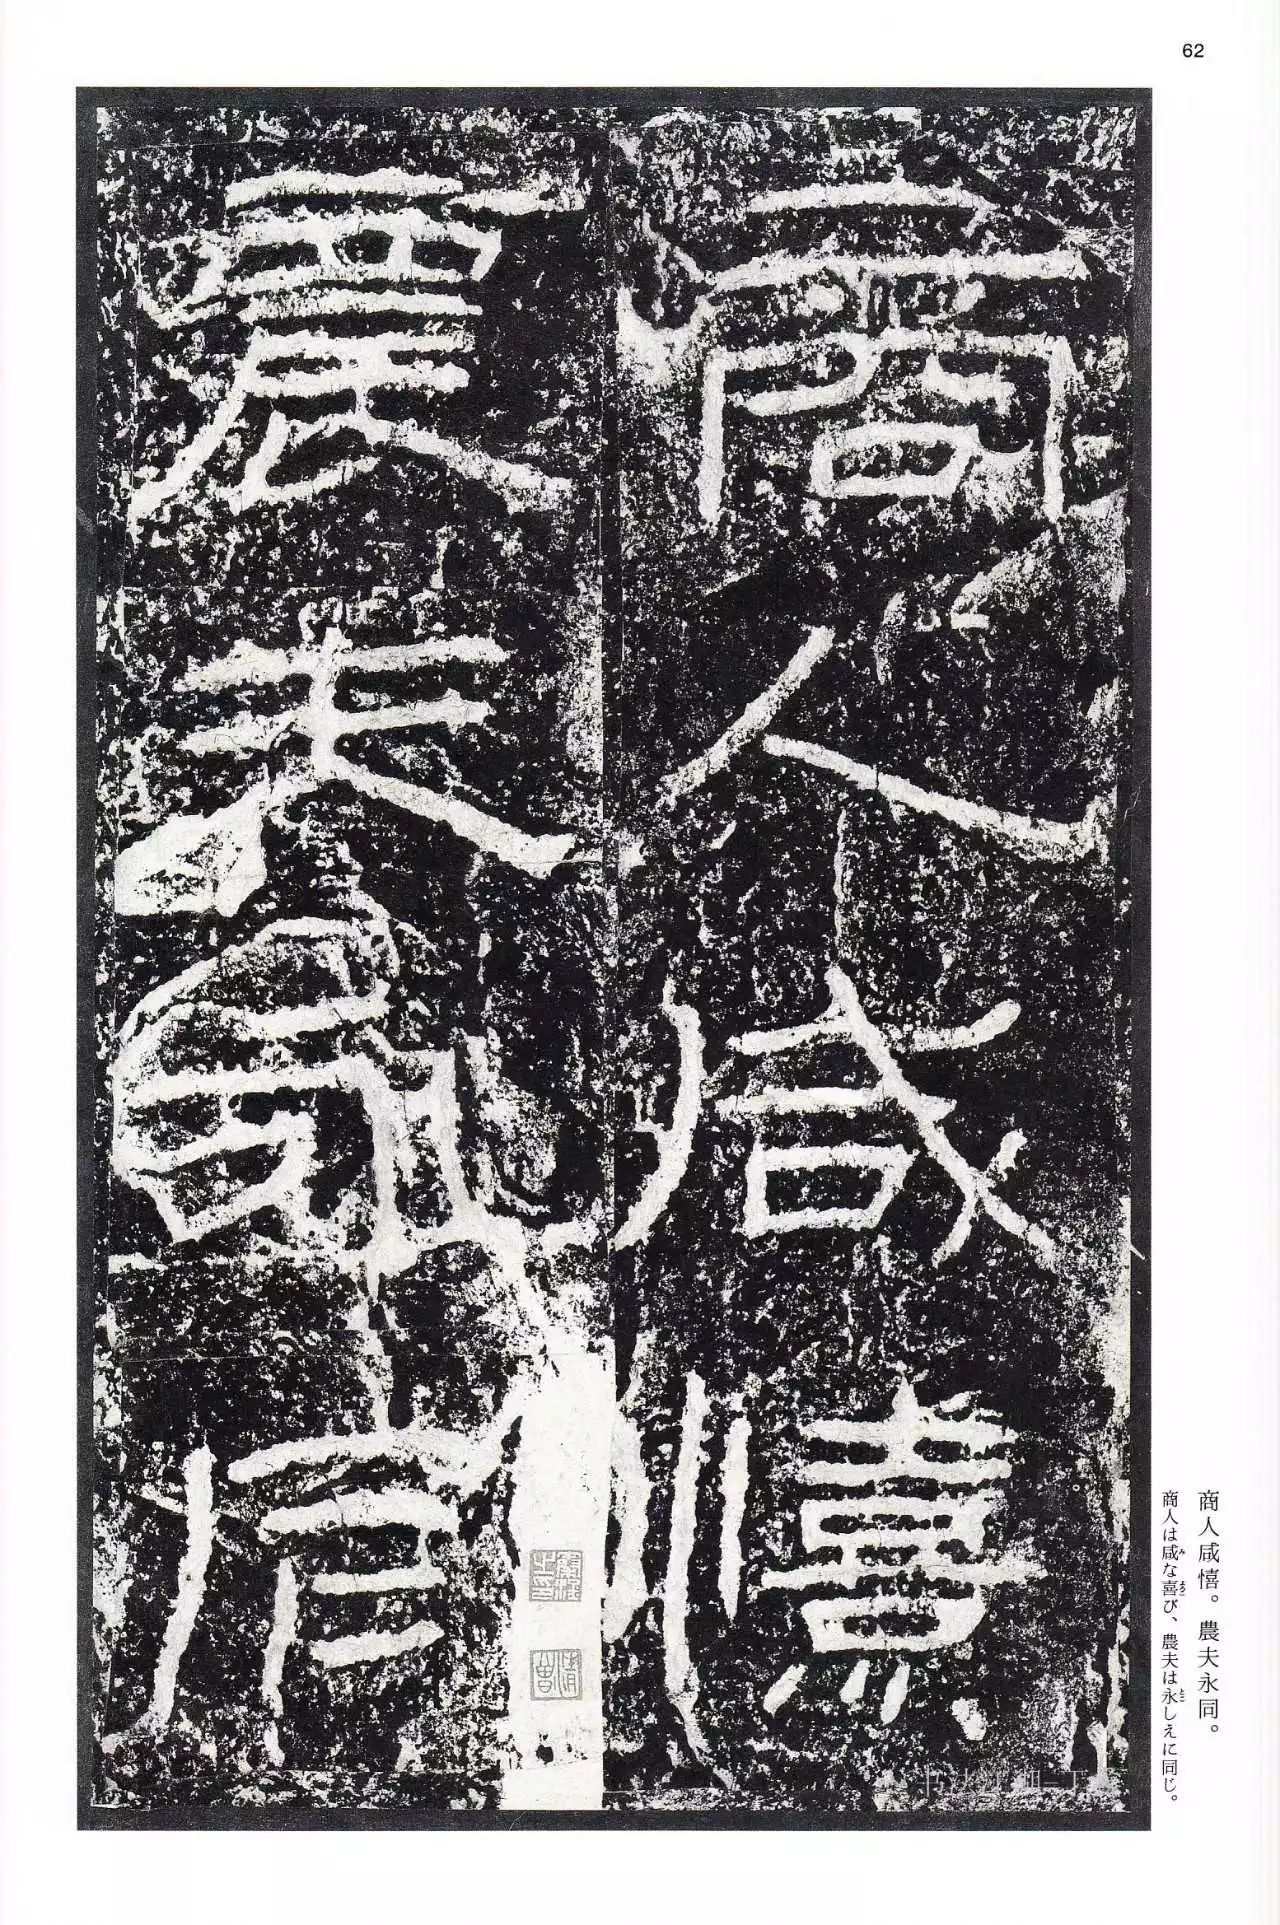 62
商人咸憘
農夫永同
商人咸憘。農夫永同。
商人は咸な喜び、農夫は永しえに同じ。